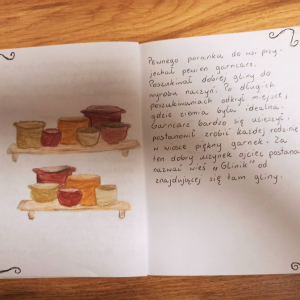 Pewnego poranka do wsi przy-
jechał pewien garncarz.
Poszukiwał dobrej gliny do
wyrobu naczyń. Po długich
poszukiwaniach odkrył miejsce,
gdzie ziemia była idealna.
Garncarz bardzo się ucieszył i
postanowił zrobić każdej rodzinie
w wiosce piękny garnek. Za
ten dobry uczynek ojciec postano
nazwać wieś "Glinik" od
znajdującej się tam gliny.